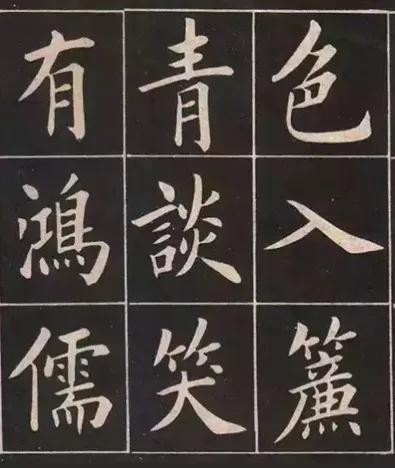 色入簾
青談笑
有鴻儒